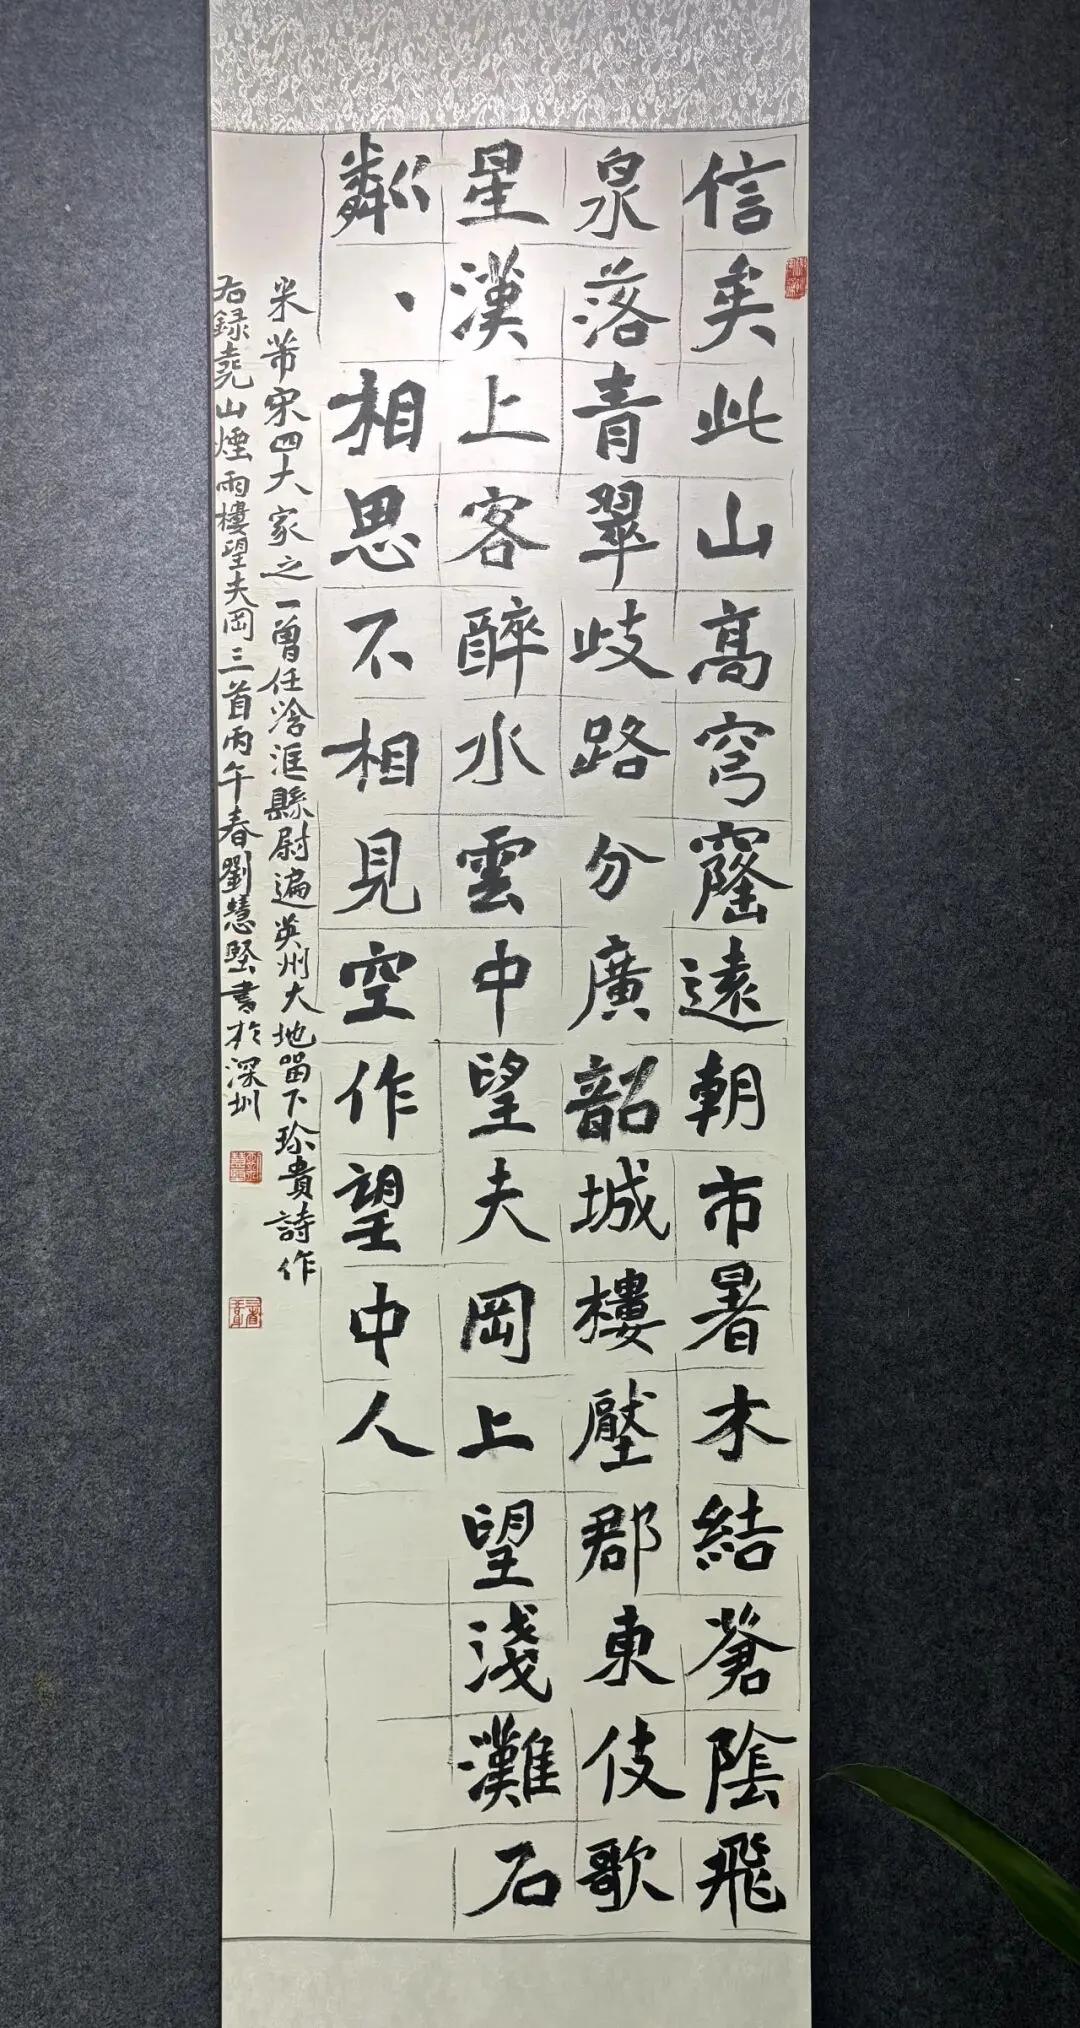 信矣此山高穹窿遠朝市暑木結蒼陰飛
泉落青翠歧路分廣韶城樓壓郡東伎歌
星漢上客醉水雲中望夫岡上望淺灘石
粼、相思不相見空作望中人
米芾宋四大家之一曾任浛洭縣尉遍英州大地留下珍貴詩作
右錄堯山煙雨樓望夫岡三首丙午春劉慧堅書於深圳